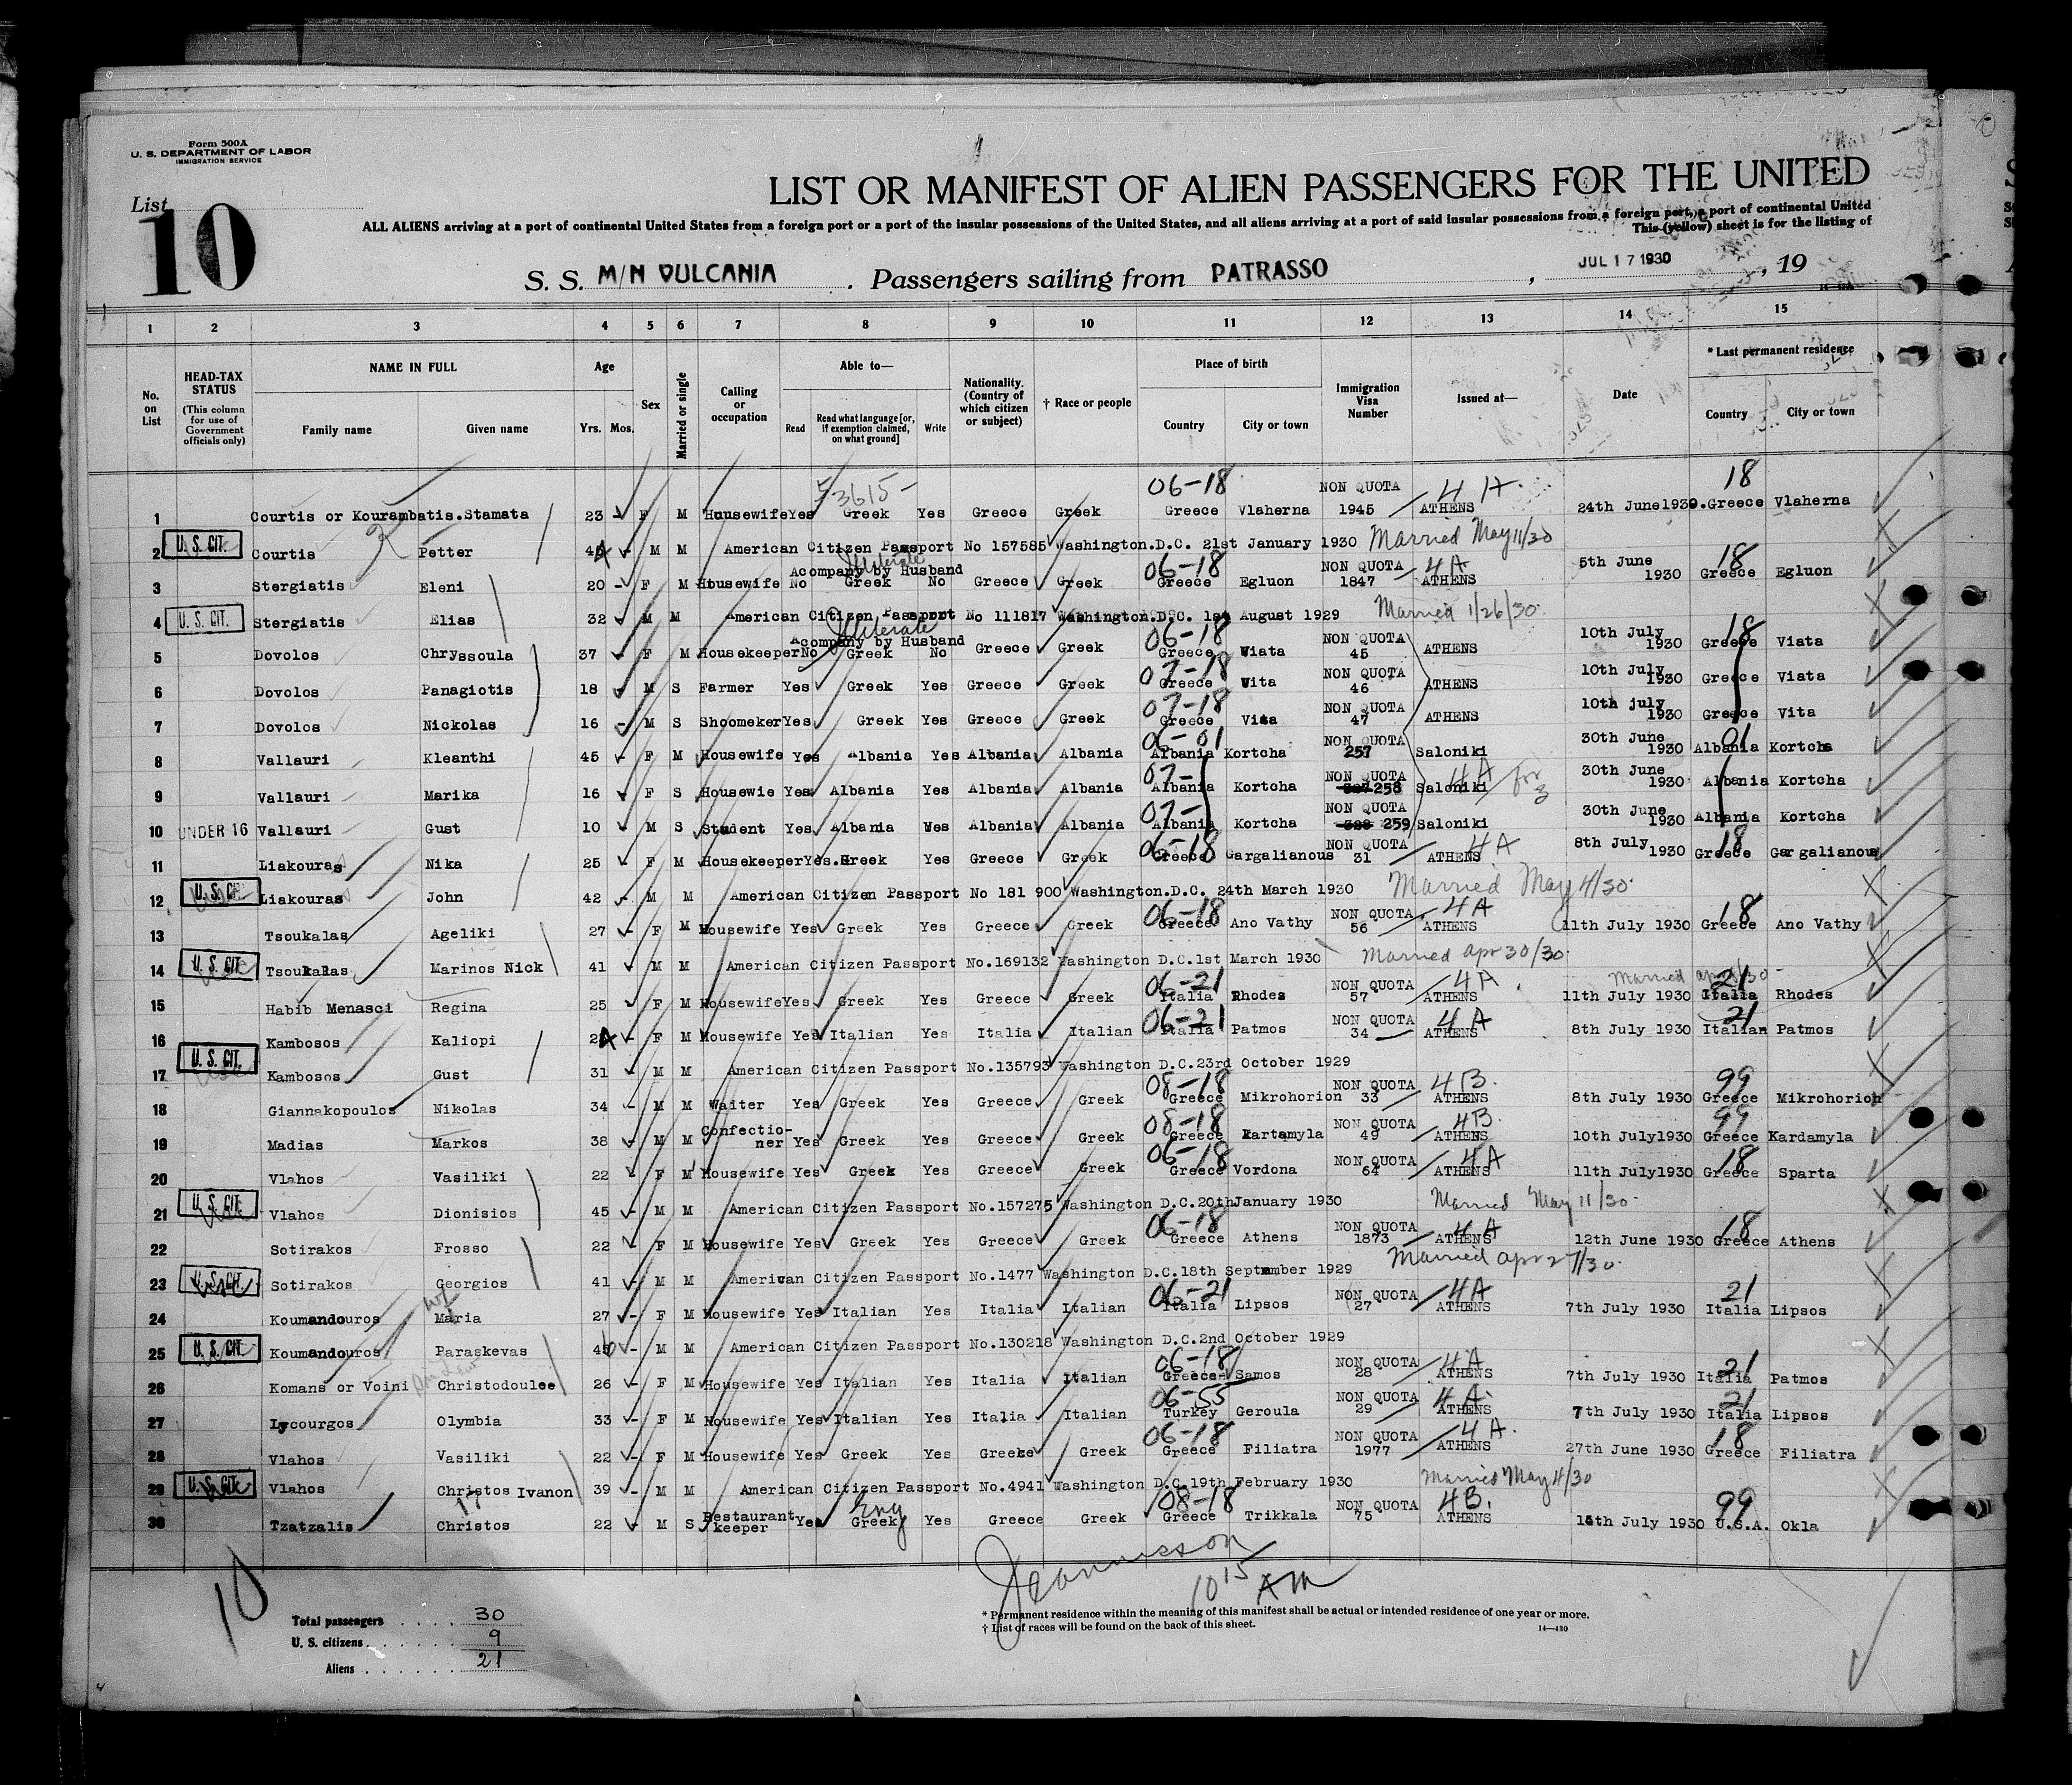 Form 500A
U. S. DEPARTMENT OF LABOR
IMMIGRATION SERVICE
List 10
LIST OR MANIFEST OF ALIEN PASSENGERS FOR THE UNITED
ALL ALIENS arriving at a port of continental United States from a foreign port or a port of the insular possessions of the United States, and all aliens arriving at a port of said insular possessions from a foreign port, a port of continental United
This (yellow) sheet is for the listing of
S. S. M/N VULCANIA . Passengers sailing from PATRASSO , JUL 17 1930 , 19
1 2 3 4 5 6 7 8 9 10 11 12 13 14 15
No. on List
HEAD-TAX STATUS (This column for use of Government officials only)
NAME IN FULL Family name Given name
Age Yrs. Mos.
Sex
Married or single
Calling or occupation
Able to— Read Read what language [or, if exemption claimed, on what ground] Write
Nationality. (Country of which citizen or subject)
† Race or people
Place of birth Country City or town
Immigration Visa Number
Issued at—
Date
* Last permanent residence Country City or town
53615- 06-18 NON QUOTA 4 A. 18
1 Courtis or Kourambatis.Stamata 23 F M Housewife Yes Greek Yes Greece Greek Greece Vlaherna 1945 ATHENS 24th June1930.Greece Vlaherna
2 U. S. CIT. Courtis Petter M M American Citizen Passport No 157585 Washington.D.C. 21st January 1930 Married May 11/30
Illiterate Acompany by Husband 06-18 NON QUOTA 4A 5th June 18
3 Stergiatis Eleni 20 - F M Housewife No Greek No Greece Greek Greece Egluon 1847 ATHENS 1930 Greece Egluon
4 U. S. CIT. Stergiatis Elias 32 M M American Citizen Passport No 111817 Washington.D.C. 1st August 1929 Married 1/26/30.
Illiterate Acompany by Husband 06-18 NON QUOTA 10th July 18
5 Dovolos Chryssoula 37 F M Housekeeper No Greek No Greece Greek Greece Viata 45 ATHENS 1930 Greece Viata
07-18 NON QUOTA 10th July
6 Dovolos Panagiotis 18 M S Farmer Yes Greek Yes Greece Greek Greece Vita 46 ATHENS 1930 Greece Viata
07-18 NON QUOTA 10th july
7 Dovolos Nickolas 16 - M S Shoomeker Yes Greek Yes Greece Greek Greece Vita 47 ATHENS 1930 Greece Vita
06-01 NON QUOTA 30th June 01
8 Vallauri Kleanthi 45 F M Housewife Yes Albania Yes Albania Albania Albania Kortcha 257 Saloniki 1930 Albania Kortcha
07- NON QUOTA 4A for 3 30th June
9 Vallauri Marika 16 F S Housewie Yes Albania Yes Albania Albania Albania Kortcha 258 Saloniki 1930 Albania Kortcha
07- NON QUOTA 30th June
10 UNDER 16 Vallauri Gust 10 M S Student Yes Albania Yes Albania Albania Albania Kortcha 259 Saloniki 1930 Albania Kortcha
06-18 NON QUOTA 4A 8th July 18
11 Liakouras Nika 25 F M Housekeeper Yes. Greek Yes Greece Greek Greece Gargalianous 31 ATHENS 1930 Greece Gargalianous
12 U. S. CIT. Liakouras John 42 - M M American Citizen Passport No 181 900 Washington.D.C. 24th March 1930 Married May 4/30.
06-18 NON QUOTA. 4A 18
13 Tsoukalas Ageliki 27 F M Housewife Yes Greek Yes Greece Greek Greece Ano Vathy 56 ATHENS 11th July 1930 Greece Ano Vathy
14 U. S. CIT. Tsoukalas Marinos Nick 41 M M American Citizen Passport No.169132 Washington D.C.1st March 1930 Married Apr 30/30.
06-21 NON QUOTA 4A 21
15 Habib Menasci Regina 25 F M Housewife Yes Greek Yes Greece Greek Italia Rhodes 57 ATHENS 11th July 1930 Italia Rhodes
06-21 NON QUOTA 4A 21
16 Kambosos Kaliopi F M Housewife Yes Italian Yes Italia Italian Italia Patmos 34 ATHENS 8th July 1930 Italian Patmos
17 U. S. CIT. Kambosos Gust 31 M M American Citizen Passport No.135793 Washington D.C.23rd October 1929
08-18 NON QUOTA 4B. 99
18 Giannakopoulos Nikolas 34 - M M Waiter Yes Greek Yes Greece Greek Greece Mikrohorion 33 ATHENS 8th July 1930 Greece Mikrohorion
08-18 NON QUOTA 4B. 99
19 Madias Markos 38 M M Confectio-ner Yes Greek Yes Greece Greek Greece Kartamyla 49 ATHENS 10th July1930 Greece Kardamyla
06-18 NON QUOTA 4A 18
20 Vlahos Vasiliki 22 F M Housewife Yes Greek Yes Greece Greek Greece Vordona 64 ATHENS 11th July1930 Greece Sparta
21 U. S. CIT. Vlahos Dionisios 45 M M American Citizen Passport No.157275 Washington D.C.20th January 1930 Married May 11/30.
06-18 NON QUOTA 4A 18
22 Sotirakos Frosso 22 F M Housewife Yes Greek Yes Greece Greek Greece Athens 1873 ATHENS 12th June 1930 Greece Athens
23 U. S. CIT. Sotirakos Georgios 41 M M American Citizen Passport No.1477 Washington D.C.18th September 1929 Married Apr 27/30.
06-21 NON QUOTA 4A 21
24 Koumandouros Maria 27 F M Housewife Yes Italian Yes Italia Italian Italia Lipsos 27 ATHENS 7th July 1930 Italia Lipsos
25 U. S. CIT. Koumandouros Paraskevas M M American Citizen Passport No.130218 Washington D.C.2nd October 1929
06-18 NON QUOTA 4A 21
26 Komans or Voini Christodoulee 26 F M Housewife Yes Italian Yes Italia Italian Greece Samos 28 ATHENS 7th July 1930 Italia Patmos
06-55 NON QUOTA 4A. 21
27 Lycourgos Olymbia 33 F M Housewife Yes Italian Yes Italia Italian Turkey Geroula 29 ATHENS 7th July 1930 Italia Lipsos
06-18 NON QUOTA 4A. 18
28 Vlahos Vasiliki 22 F M Housewife Yes Greek Yes Greece Greek Greece Filiatra 1977 ATHENS 27th June 1930 Greece Filiatra
29 U. S. CIT. Vlahos Christos Ivanon 39 - M M American Citizen Passport No.4941 Washington D.C.19th February 1930 Married May 4/30
Eng 08-18 NON QUOTA 4B. 99
30 Tzatzalis Christos 22 M S Restaurant keeper Yes Greek Yes Greece Greek Greece Trikkala 75 ATHENS 15th July 1930 U.S.A. Okla
10 15 AM
10
Total passengers . . . . 30
U. S. citizens . . . . . . 9
Aliens . . . . . . 21
* Permanent residence within the meaning of this manifest shall be actual or intended residence of one year or more.
† List of races will be found on the back of this sheet. 14—430